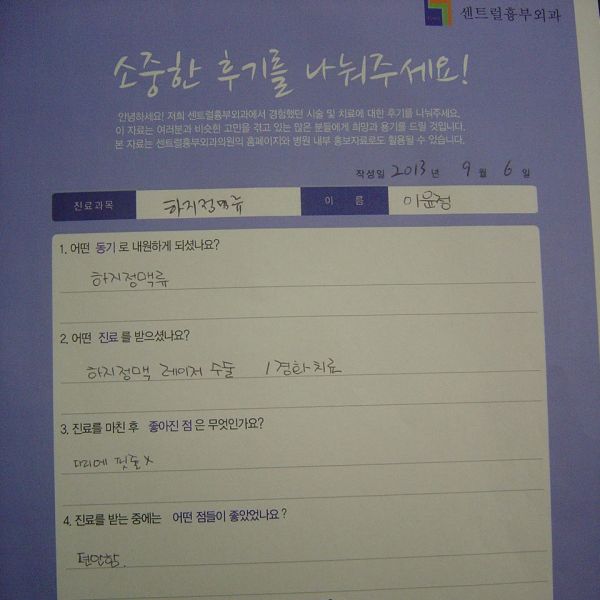 센트럴흉부외과
소중한 후기를 나눠주세요!
안녕하세요! 저희 센트럴흉부외과에서 경험했던 시술 및 치료에 대한 후기를 나눠주세요.
이 자료는 여러분과 비슷한 고민을 겪고 있는 많은 분들에게 희망과 용기를 드릴 것입니다.
본 자료는 센트럴흉부외과의원의 홈페이지와 병원 내부 홍보자료로도 활용될 수 있습니다.
작성일 2013 년 9 월 6 일
진료과목 하지정맥류 이 름 이윤정
1. 어떤 동기 로 내원하게 되셨나요?
하지정맥류
2. 어떤 진료 를 받으셨나요?
하지정맥 레이저 수술 / 경화치료
3. 진료를 마친 후 좋아진 점 은 무엇인가요?
다리에 핏줄 x
4. 진료를 받는 중에는 어떤 점들이 좋았었나요?
편안함.